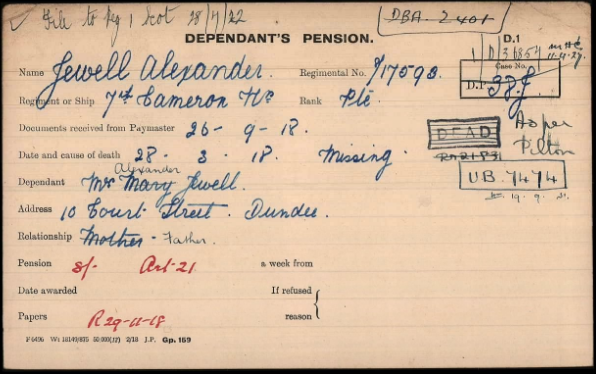 File to Reg 1 Scot 28/7/22
DBA-2401
DEPENDANT'S PENSION.
D.1
1/D/36854
11.4.27.
Name Jewell Alexander. Regimental No. S/17593.
Case No.
D.1
Regiment or Ship 7th Cameron Hrs Rank Pte.
Documents received from Paymaster 26-9-18.
DEAD
As per
Date and cause of death 28. 3. 18. Missing.
R.21.8.31
Alexander
Dependant Mrs Mary Jewell.
UB 7474
19. 9.
Address 10 Court Street. Dundee.
Relationship Mother - Father.
Pension 5/- Art-21 a week from
Date awarded If refused
Papers R29-11-18 reason
F 6496 Wt 18149/875 50,000(12) 2/18 J.P. Gp. 159